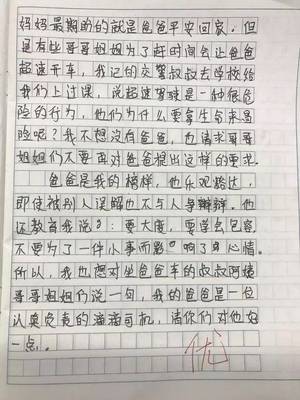 妈妈最期盼的就是爸爸平安回家。但
是有些哥哥姐姐为了赶时间会让爸爸
超速开车，我记的交警叔叔去学校给
我们上过课，说超速驾驶是一种很危
险的行为，他们为什么要拿生命来冒
险呢？我不想没有爸爸，也请求哥哥
姐姐们不要再对爸爸提出这样的要求。
爸爸是我的榜样，他乐观豁达，
即使被别人误解也不与人争辩。他
还教育我说"：要大度，要学会包容，
不要为了一件小事而影响了心情。
所以，我也想对坐爸爸车的叔叔阿姨
哥哥姐姐们说一句，我的爸爸是一位
认真负责的滴滴司机，请你们对他好
一点。
优